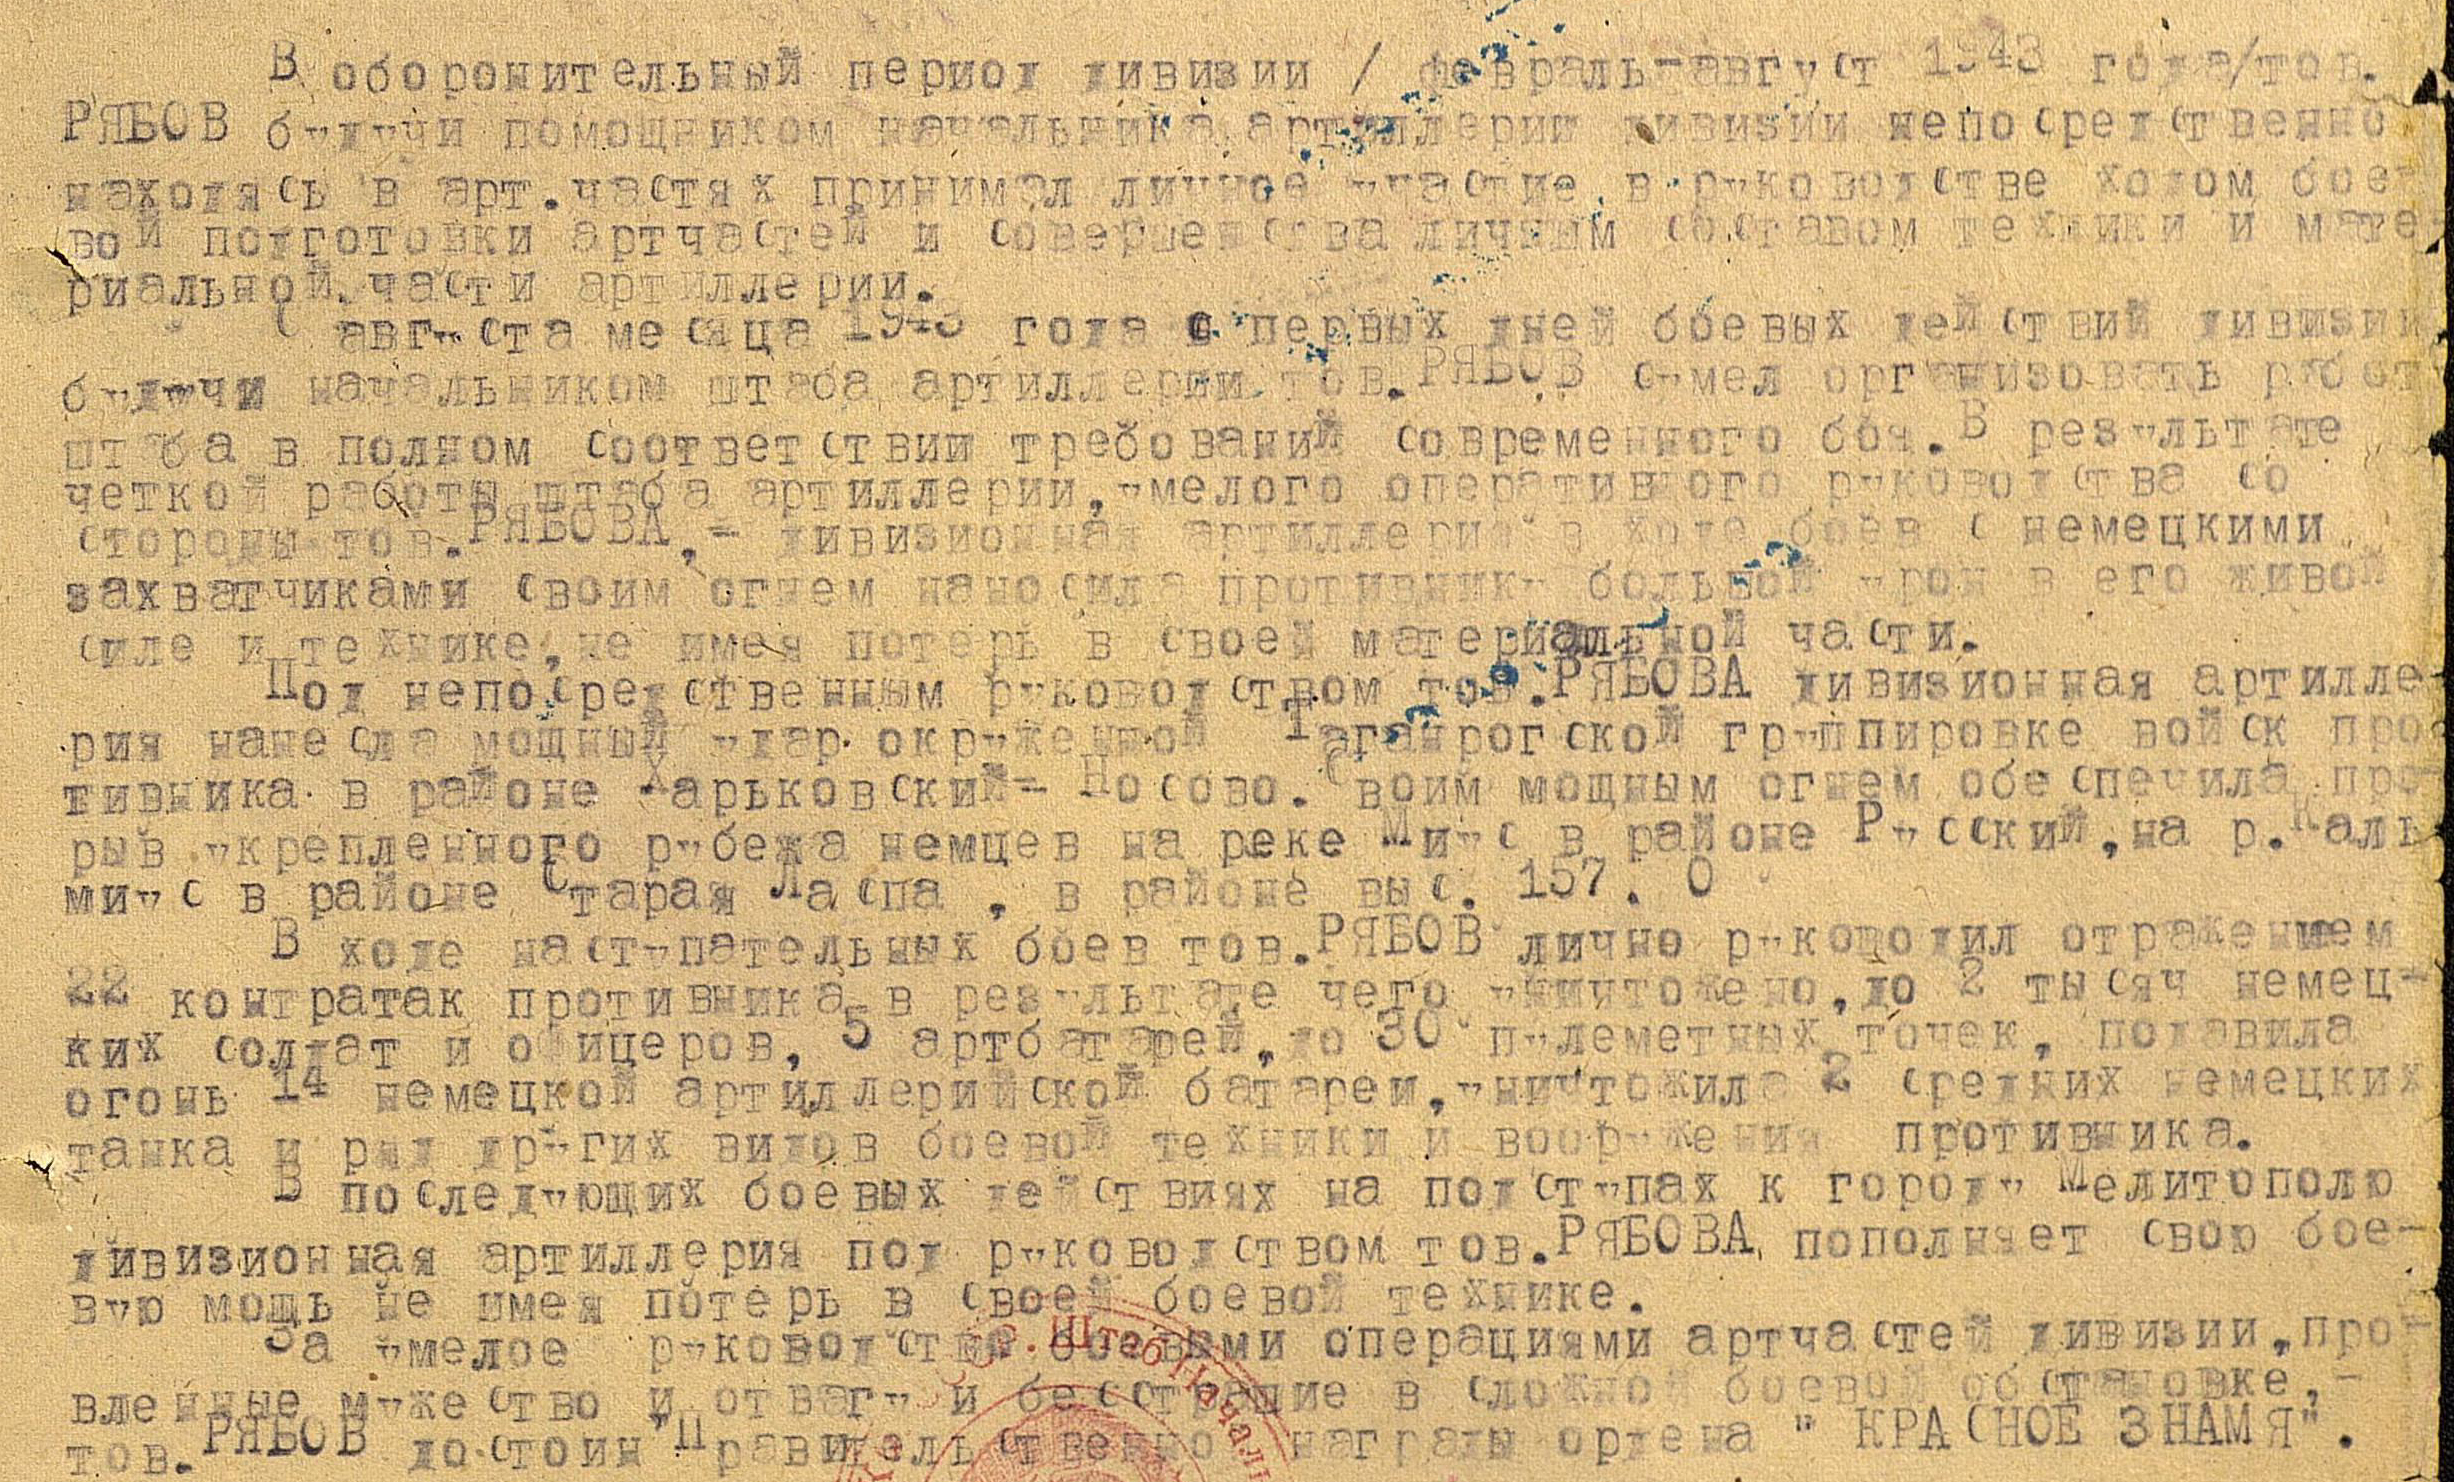 В оборонительный период дивизии / февраль-август 1943 года/тов.
РЯБОВ будучи помощником начальника артиллерии дивизии непосредственно
находясь в арт.частях принимал личное участие в руководстве ходом бое-
вой подготовки артчастей и совершенства личным составом техники и мате-
риальной части артиллерии.
С августа месяца 1943 года с первых дней боевых действий дивизии
будучи начальником штаба артиллерии тов.РЯБОВ сумел организовать работу
штаба в полном соответствии требований современного боя.В результате
четкой работы штаба артиллерии,умелого оперативного руководства со
стороны тов.РЯБОВА,- дивизионная артиллерия в ходе боев с немецкими
захватчиками своим огнем наносила противнику большой урон в его живой
силе и технике,не имея потерь в своей материальной части.
Под непосредственным руководством тов.РЯБОВА дивизионная артилле-
рия нанесла мощный удар окруженной Таганрогской группировке войск про-
тивника в районе Харьковский- Носово.Своим мощным огнем обеспечила про-
рыв укрепленного рубежа немцев на реке Миус в районе Русский,на р.Каль-
миус в районе Старая Ласпа , в районе выс. 157. 0
В ходе наступательных боев тов.РЯБОВ лично руководил отражением
22 контратак противника в результате чего уничтожено,до 2 тысяч немец-
ких солдат и офицеров, 5 артбатарей,до 30 пулеметных точек, подавила
огонь 14 немецкой артиллерийской батареи,уничтожила 2 средних немецких
танка и ряд других видов боевой техники и вооружения противника.
В последующих боевых действиях на подступах к городу Мелитополю
дивизионная артиллерия под руководством тов.РЯБОВА пополняет свою бое-
вую мощь не имея потерь в своей боевой технике.
За умелое руководство боевыми операциями артчастей дивизии,про-
вленные мужество и отвагу и бесстрашие в сложной боевой обстановке,-
тов.РЯБОВ достоин Правительственной награды ордена " КРАСНОЕ ЗНАМЯ".
Штаб Начал